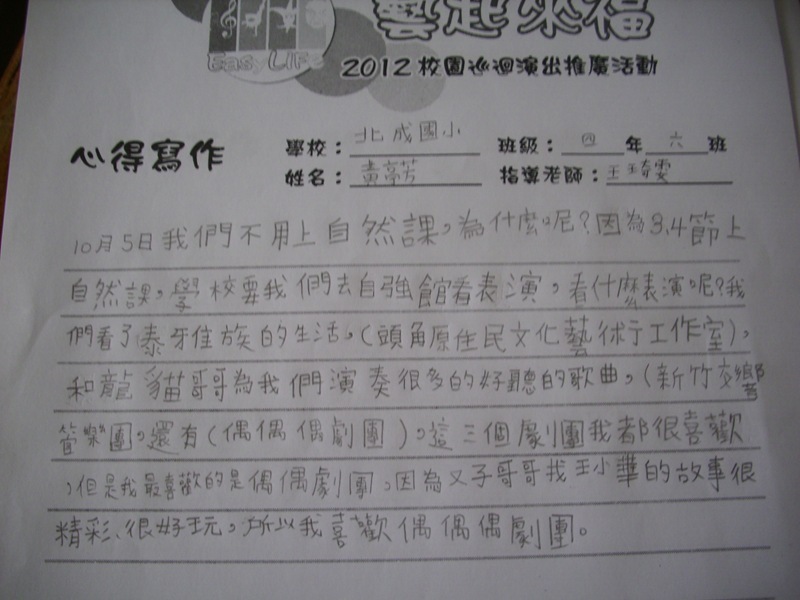 藝起來福
EasyLIFE
2012校園巡迴演出推廣活動
心得寫作
學校：北成國小 班級：四年六班
姓名：黃亭芳 指導老師：王琦雯
10月5日我們不用上自然課，為什麼呢？因為3,4節上
自然課，學校要我們去自強館看表演，看什麼表演呢？我
們看了泰牙住族的生活，(頭角原住民文化藝術行工作室)，
和龍貓哥哥為我們演奏很多的好聽的歌曲，(新竹交響
管樂團，還有(偶偶偶劇團)，這三個劇團我都很喜歡
，但是我最喜歡的是偶偶偶劇團，因為叉子哥哥我王小華的故事很
精彩、很好玩，所以我喜歡偶偶偶劇團。